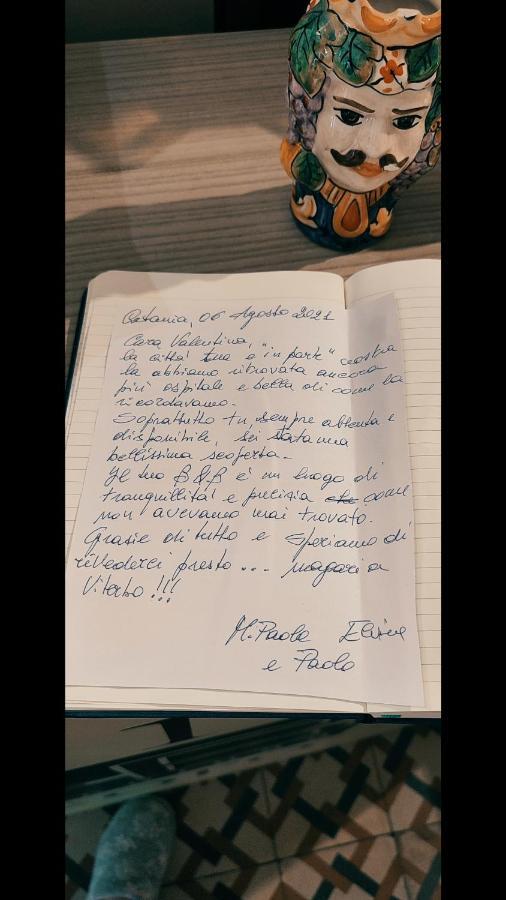 Catania, 06 Agosto 2021
Cara Valentina,
la città tua e "in parte" nostra
la abbiamo ritrovata ancora
più ospitale e bella di come la
ricordavamo.
Soprattutto tu, sempre attenta e
disponibile, sei stata una
bellissima scoperta.
Il tuo B&B è un luogo di
tranquillità e pulizia come
non avevamo mai trovato.
Grazie di tutto e speriamo di
rivederci presto... magari a
Viterbo !!!
M. Paola
e Paolo